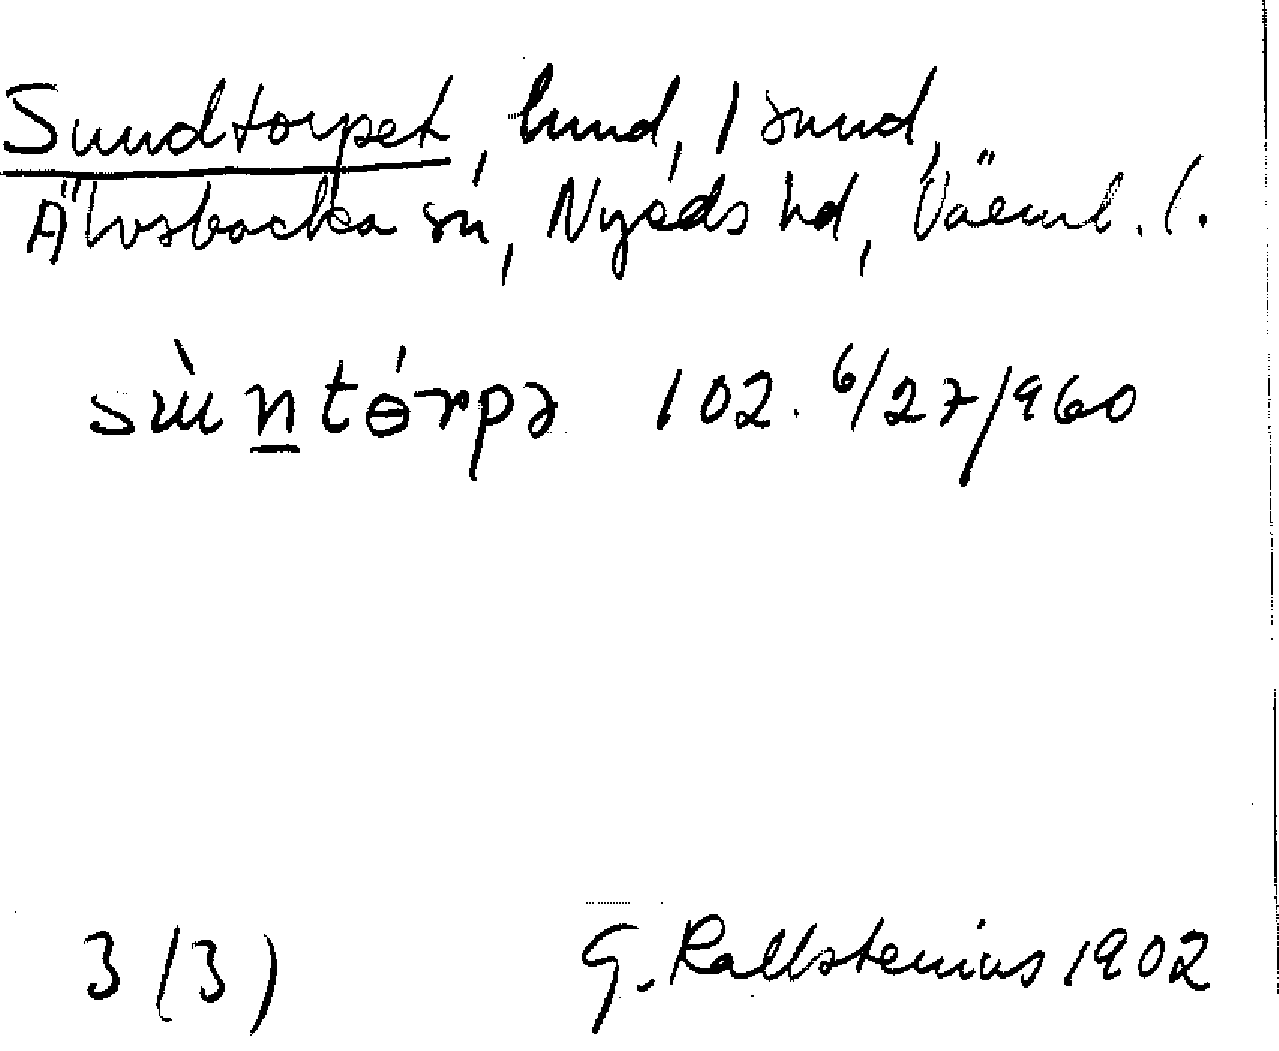 Sundtorpet, lund, 1 sund,
Älvsbacka sn, Nyeds hd, Värml. l.
su̠ntɵrpə 102. 6/27/960
3(3) G. Kallstenius 1902